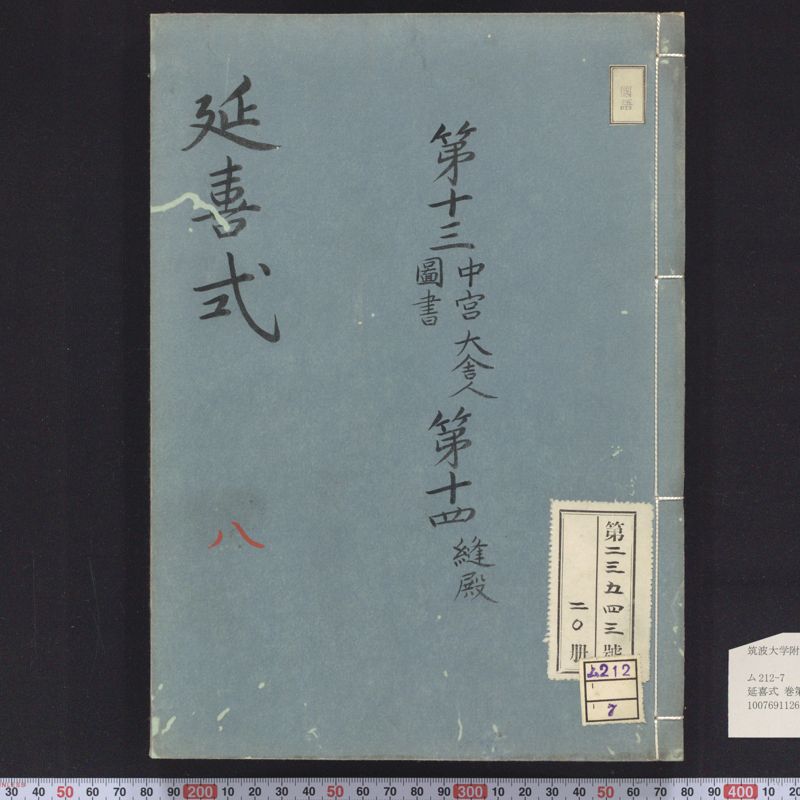 國語
第十三 中宮 大舎人
圖書
第十四 縫殿
延喜式
八
第二三五四三號
二〇册
ム212
7
筑波大学附
ム 212-7
延喜式 巻第
1007691126
30 40 50 60 70 80 90 200 10 20 30 40 50 60 70 80 90 300 10 20 30 40 50 60 70 80 90 400 10 20